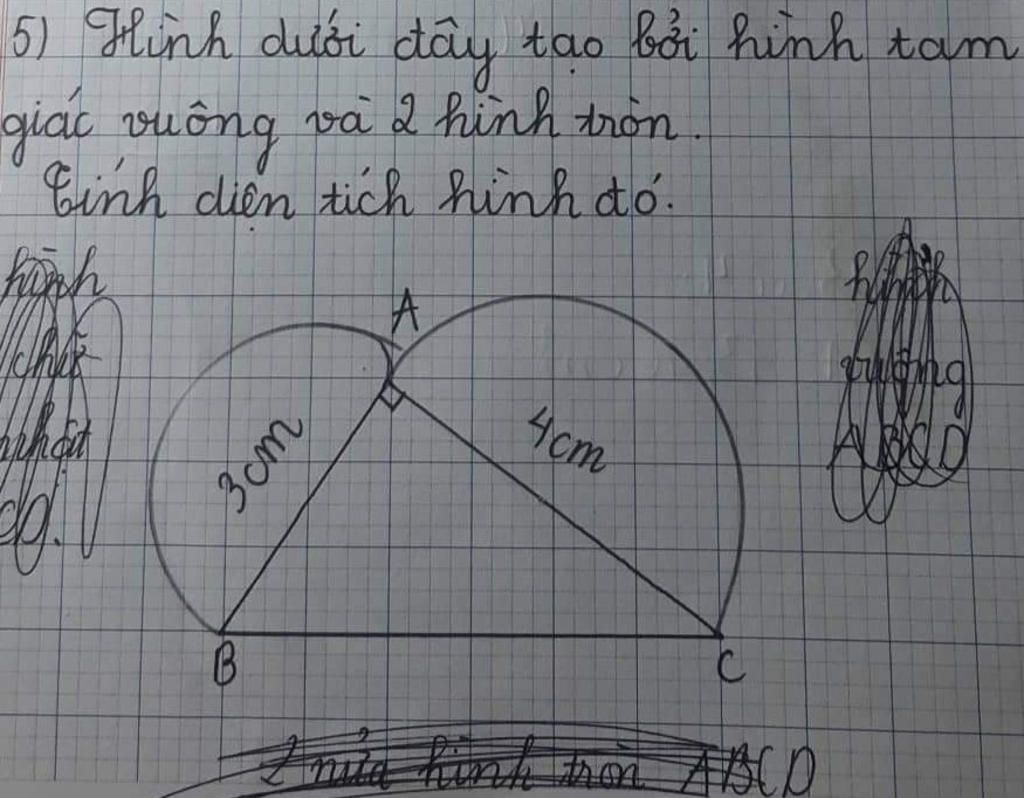 5) Hình dưới đây tạo bởi hình tam
giác vuông và 2 hình tròn.
Tính diện tích hình đó.
hình
chữ
nhật
đó.
hình
vuông
ABCD
A
3cm
4cm
B
C
2 nửa hình tròn ABCD